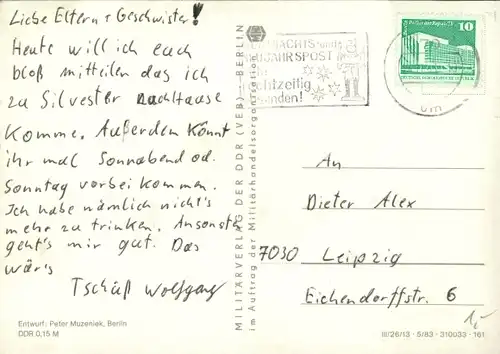 Liebe Eltern + Geschwister!
Heute will ich euch
bloß mitteilen das ich
zu Silvester nachHause
Komme. Außerden Könnt
ihr mal Sonnabend od.
Sonntag vorbei kommen.
Ich habe nämlich nicht's
mehr zu trinken. Ansonsten
geht's mir gut. Das
wär's
Tschüß Wolfgang
Entwurf: Peter Muzeniek, Berlin
DDR 0,15 M
MILITÄRVERLAG DER DDR (VEB) – BERLIN
im Auftrag der Militärhandelsorganisation
NACHTS- und
JAHRSPOST
htzeitig
enden!
10
An
Dieter Alex
7030 Leipzig
Eichendorffstr. 6
III/26/13 · 5/83 · 310033 · 161